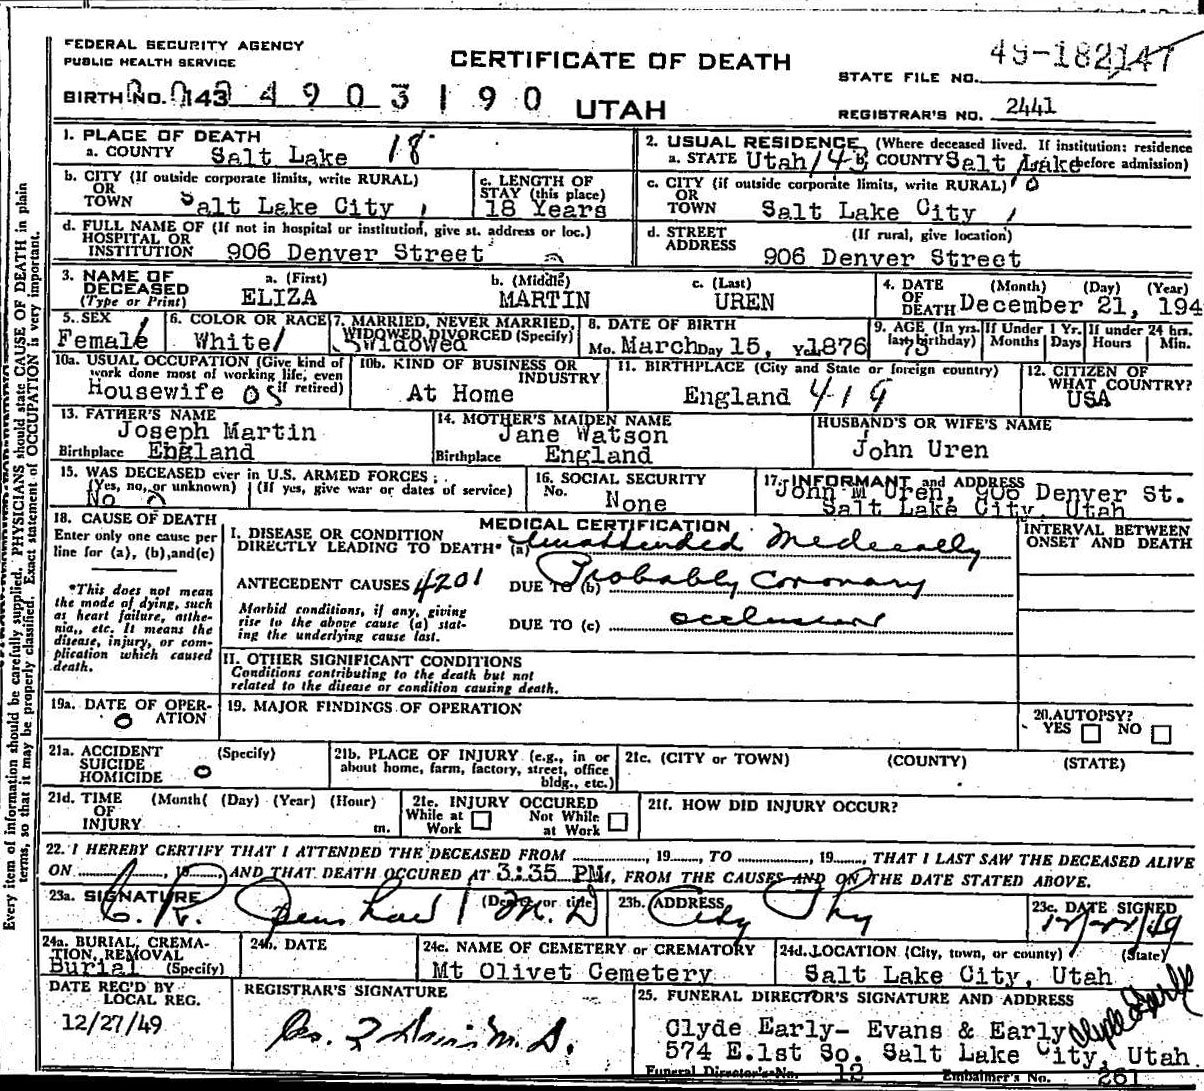 FEDERAL SECURITY AGENCY
PUBLIC HEALTH SERVICE
CERTIFICATE OF DEATH
49-182147
STATE FILE NO.
BIRTH NO. 143 4903190
UTAH
REGISTRAR'S NO. 2441
1. PLACE OF DEATH
a. COUNTY Salt Lake 18
2. USUAL RESIDENCE (Where deceased lived. If institution: residence
a. STATE Utah/43 b. COUNTY Salt Lake before admission)
b. CITY (If outside corporate limits, write RURAL)
OR
TOWN Salt Lake City
c. LENGTH OF
STAY (this place)
18 Years
c. CITY (if outside corporate limits, write RURAL)
OR
TOWN Salt Lake City
d. FULL NAME OF (If not in hospital or institution, give st. address or loc.)
HOSPITAL OR
INSTITUTION 906 Denver Street
d. STREET (If rural, give location)
ADDRESS 906 Denver Street
3. NAME OF DECEASED
(Type or Print)
a. (First) ELIZA
b. (Middle) MARTIN
c. (Last) UREN
4. DATE OF DEATH (Month) (Day) (Year)
December 21, 194
5. SEX
Female
6. COLOR OR RACE
White
7. MARRIED, NEVER MARRIED,
WIDOWED, DIVORCED (Specify)
Widowed
8. DATE OF BIRTH
Mo. March Day 15, Year 1876
9. AGE (In yrs. last birthday) 73
If Under 1 Yr. Months Days
If under 24 hrs. Hours Min.
10a. USUAL OCCUPATION (Give kind of
work done most of working life, even
if retired)
Housewife 05
10b. KIND OF BUSINESS OR
INDUSTRY
At Home
11. BIRTHPLACE (City and State or foreign country)
England 419
12. CITIZEN OF
WHAT COUNTRY?
USA
13. FATHER'S NAME
Joseph Martin
Birthplace England
14. MOTHER'S MAIDEN NAME
Jane Watson
Birthplace England
HUSBAND'S OR WIFE'S NAME
John Uren
15. WAS DECEASED ever in U.S. ARMED FORCES:
(Yes, no, or unknown) (If yes, give war or dates of service)
No
16. SOCIAL SECURITY
No. None
17. INFORMANT and ADDRESS
John M Uren, 906 Denver St.
Salt Lake City, Utah
18. CAUSE OF DEATH
Enter only one cause per
line for (a), (b), and (c)
*This does not mean
the mode of dying, such
as heart failure, asthe-
nia, etc. It means the
disease, injury, or com-
plication which caused
death.
MEDICAL CERTIFICATION
I. DISEASE OR CONDITION
DIRECTLY LEADING TO DEATH* (a) Unattended Medically
ANTECEDENT CAUSES 4201 DUE TO (b) Probably Coronary
Morbid conditions, if any, giving
rise to the above cause (a) stat-
ing the underlying cause last.
DUE TO (c) occlusion
INTERVAL BETWEEN
ONSET AND DEATH
II. OTHER SIGNIFICANT CONDITIONS
Conditions contributing to the death but not
related to the disease or condition causing death.
19a. DATE OF OPER-
ATION 0
19. MAJOR FINDINGS OF OPERATION
20. AUTOPSY?
YES NO
21a. ACCIDENT (Specify)
SUICIDE
HOMICIDE 0
21b. PLACE OF INJURY (e.g., in or
about home, farm, factory, street, office
bldg., etc.)
21c. (CITY or TOWN) (COUNTY) (STATE)
21d. TIME (Month) (Day) (Year) (Hour)
OF
INJURY m.
21e. INJURY OCCURED
While at Work Not While at Work
21f. HOW DID INJURY OCCUR?
22. I HEREBY CERTIFY THAT I ATTENDED THE DECEASED FROM , 19 , TO , 19 , THAT I LAST SAW THE DECEASED ALIVE
ON , 19 AND THAT DEATH OCCURED AT 3:35 PM, FROM THE CAUSES AND ON THE DATE STATED ABOVE.
23a. SIGNATURE (Degree or title) M.D
23b. ADDRESS
City Phy
23c. DATE SIGNED
12/22/49
24a. BURIAL, CREMA-
TION, REMOVAL
Burial (Specify)
24b. DATE
24c. NAME OF CEMETERY or CREMATORY
Mt Olivet Cemetery
24d. LOCATION (City, town, or county) (State)
Salt Lake City, Utah
DATE REC'D BY
LOCAL REG.
12/27/49
REGISTRAR'S SIGNATURE
M.D.
25. FUNERAL DIRECTOR'S SIGNATURE AND ADDRESS
Clyde Early
Clyde Early- Evans & Early
574 E.1st So. Salt Lake City, Utah
Funeral Director's No. 12 Embalmer's No. 261
Every item of information should be carefully supplied. PHYSICIANS should state CAUSE OF DEATH in plain
terms, so that it may be properly classified. Exact statement of OCCUPATION is very important.